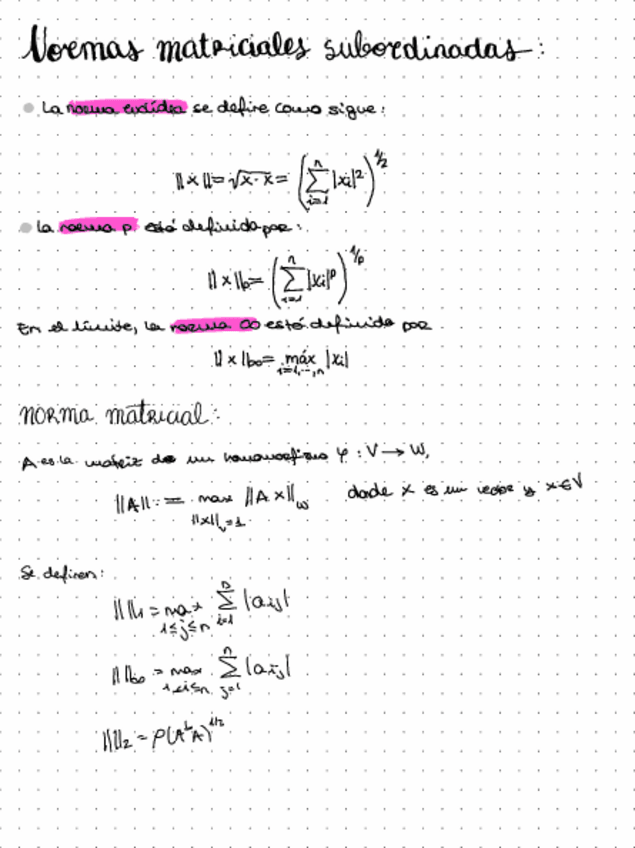 Normas matriciales subordinadas:
La norma euclídea se define como sigue:
||x||=√x·x = (∑_{i=1}^{n} |xi|²)^{1/2}
La norma p está definida por:
||x||p= (∑_{i=1}^{n} |xi|^p)^{1/p}
En el límite, la norma ∞ está definida por
||x||∞= máx_{i=1,...,n} |xi|
Norma matricial:
A es la matriz de un homomorfismo φ: V → W,
||A|| := max_{||x||_v=1} ||Ax||_w donde x es un vector y x∈V
Se definen:
|| ||1 = max_{1≤j≤n} ∑_{i=1}^{n} |aij|
|| ||∞ = max_{1≤i≤n} ∑_{j=1}^{n} |aij|
|| ||2 = ρ(A^t A)^{1/2}